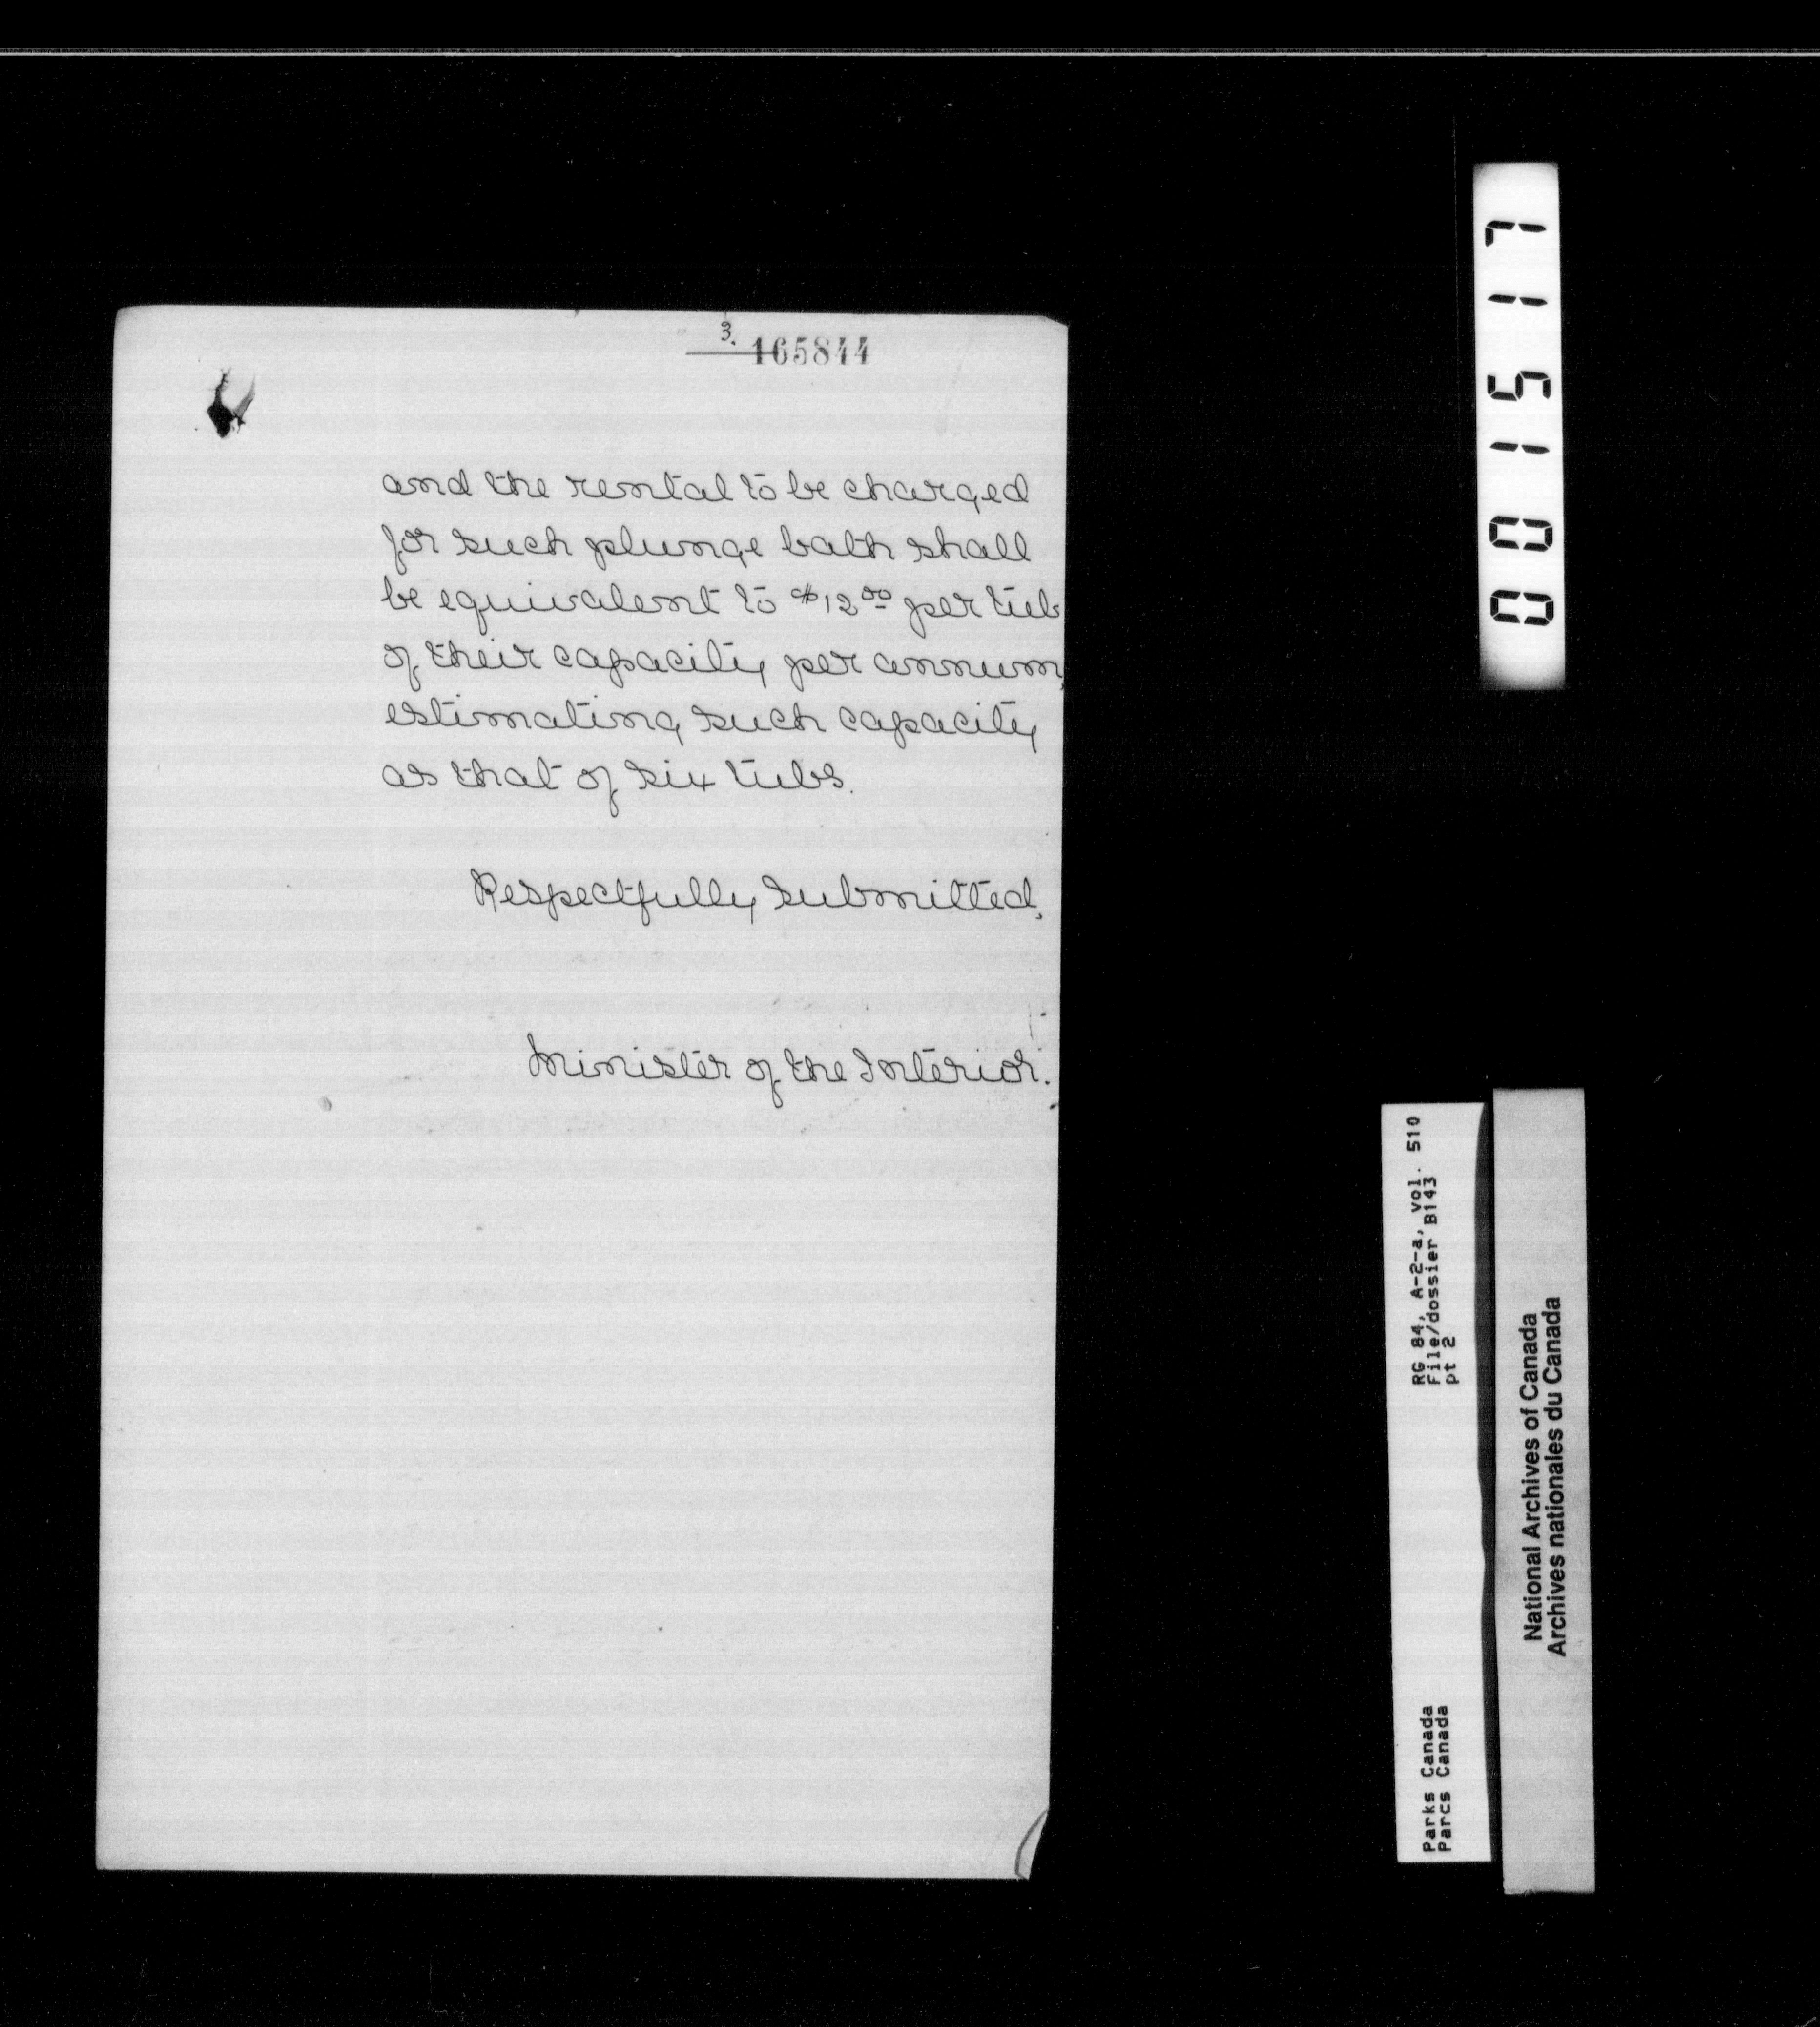 3.
165844
and the rental to be charged
for such plunge bath shall
be equivalent to $12.00 per tub
of their capacity per annum,
estimating such capacity
as that of six tubs.
Respectfully submitted,
Minister of the Interior.
001517
RG 84, A-2-a, vol. 510
File/dossier B143
pt 2
Parks Canada
Parcs Canada
National Archives of Canada
Archives nationales du Canada